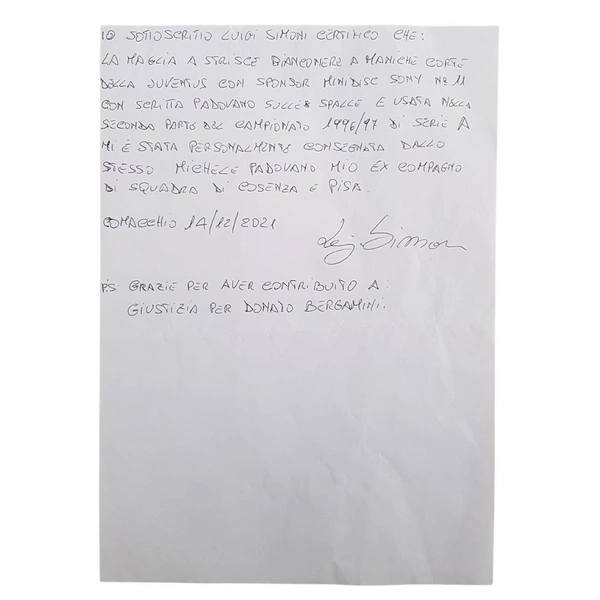 IO SOTTOSCRITTO LUIGI SIMONI CERTIFICO CHE:
LA MAGLIA A STRISCE BIANCONERE A MANICHE CORTE
DELLA JUVENTUS CON SPONSOR MINIDISC SONY N° 11
CON SCRITTA PADOVANO SULLE SPALLE E USATA NELLA
SECONDA PARTE DEL CAMPIONATO 1996/97 DI SERIE A
MI È STATA PERSONALMENTE CONSEGNATA DALLO
STESSO MICHELE PADOVANO MIO EX COMPAGNO
DI SQUADRA DI COSENZA E PISA.
COMACCHIO 14/12/2021
Luigi Simoni
P.S. GRAZIE PER AVER CONTRIBUITO A:
GIUSTIZIA PER DONATO BERGAMINI.